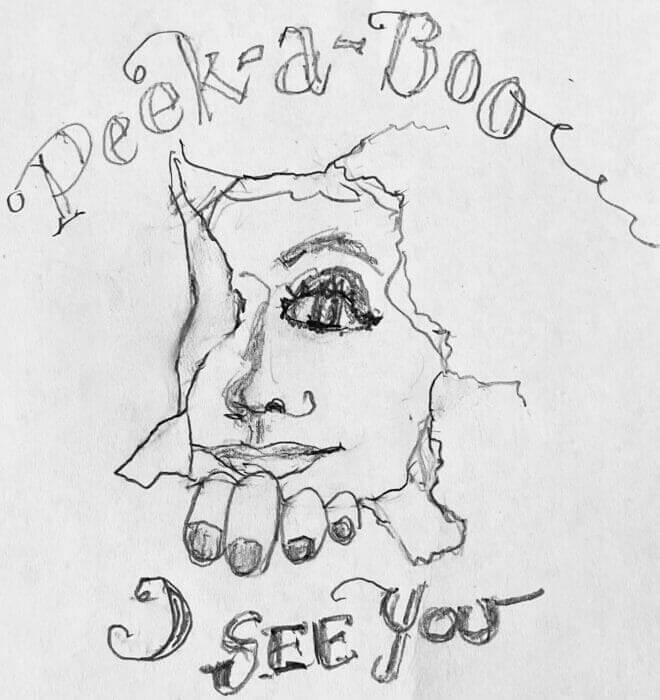 Peek-a-Boo
I SEE YOU